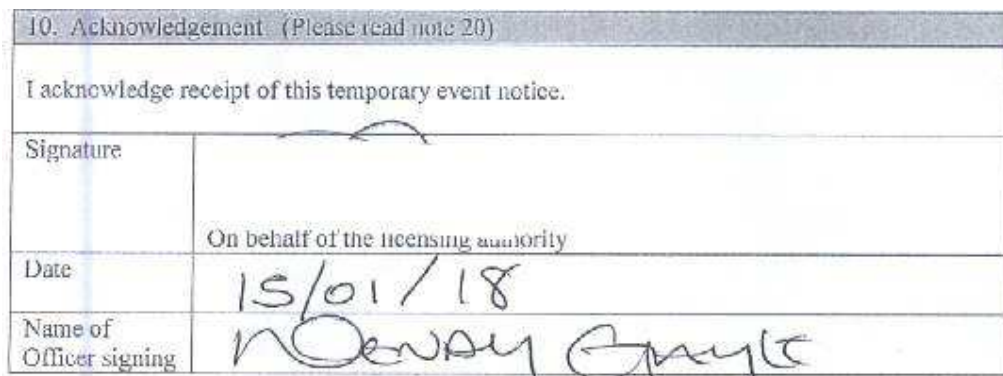 10. Acknowledgement (Please read note 20)
I acknowledge receipt of this temporary event notice.
Signature
On behalf of the licensing authority
Date
15/01/18
Name of
Officer signing